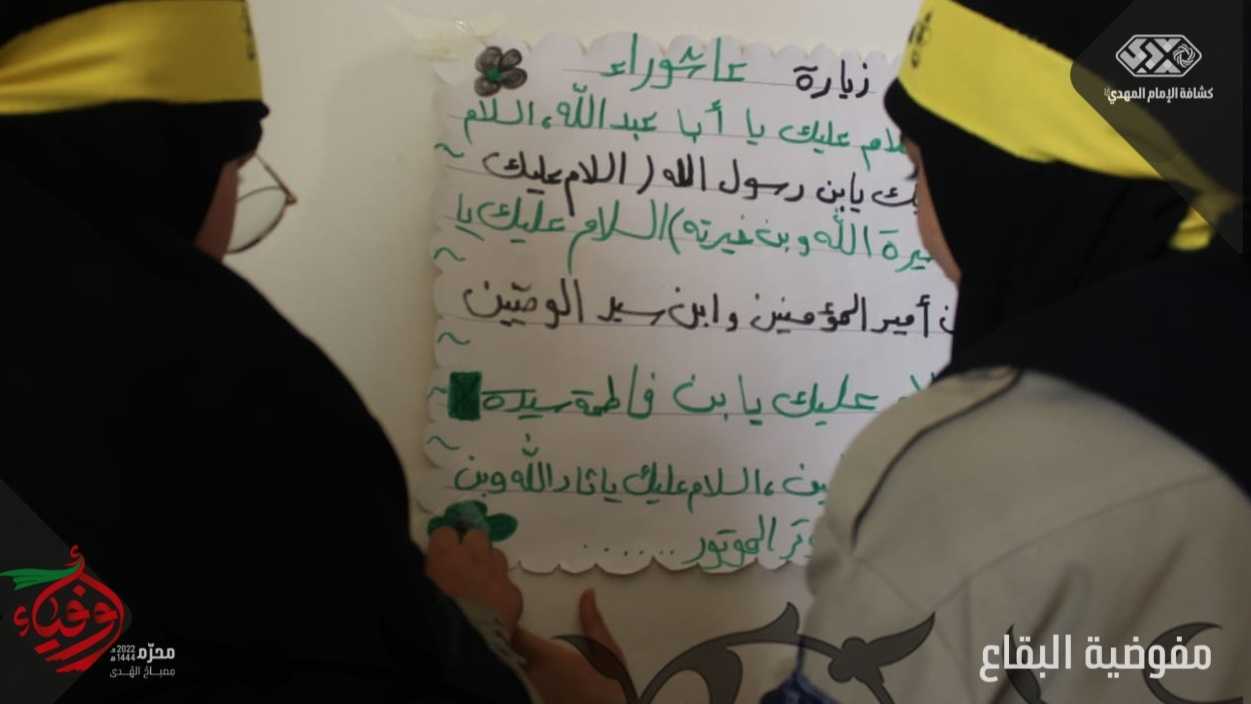 زيارة عاشوراء
لام عليك يا أبا عبدالله، السلام
ك يابن رسول الله ( اللام عليك
يرة الله وبن خيرته) السلام عليك يا
ن أمير المؤمنين وابن سيد الوصيّين
عليك يا بن فاطمة سيدة
ين، السلام عليك يا ثار الله وبن
وتر الموتور ......
كشافة الإمام المهدي
أوفياء
محرّم 2022م 1444هـ
مصباح الهُدى
مفوضية البقاع